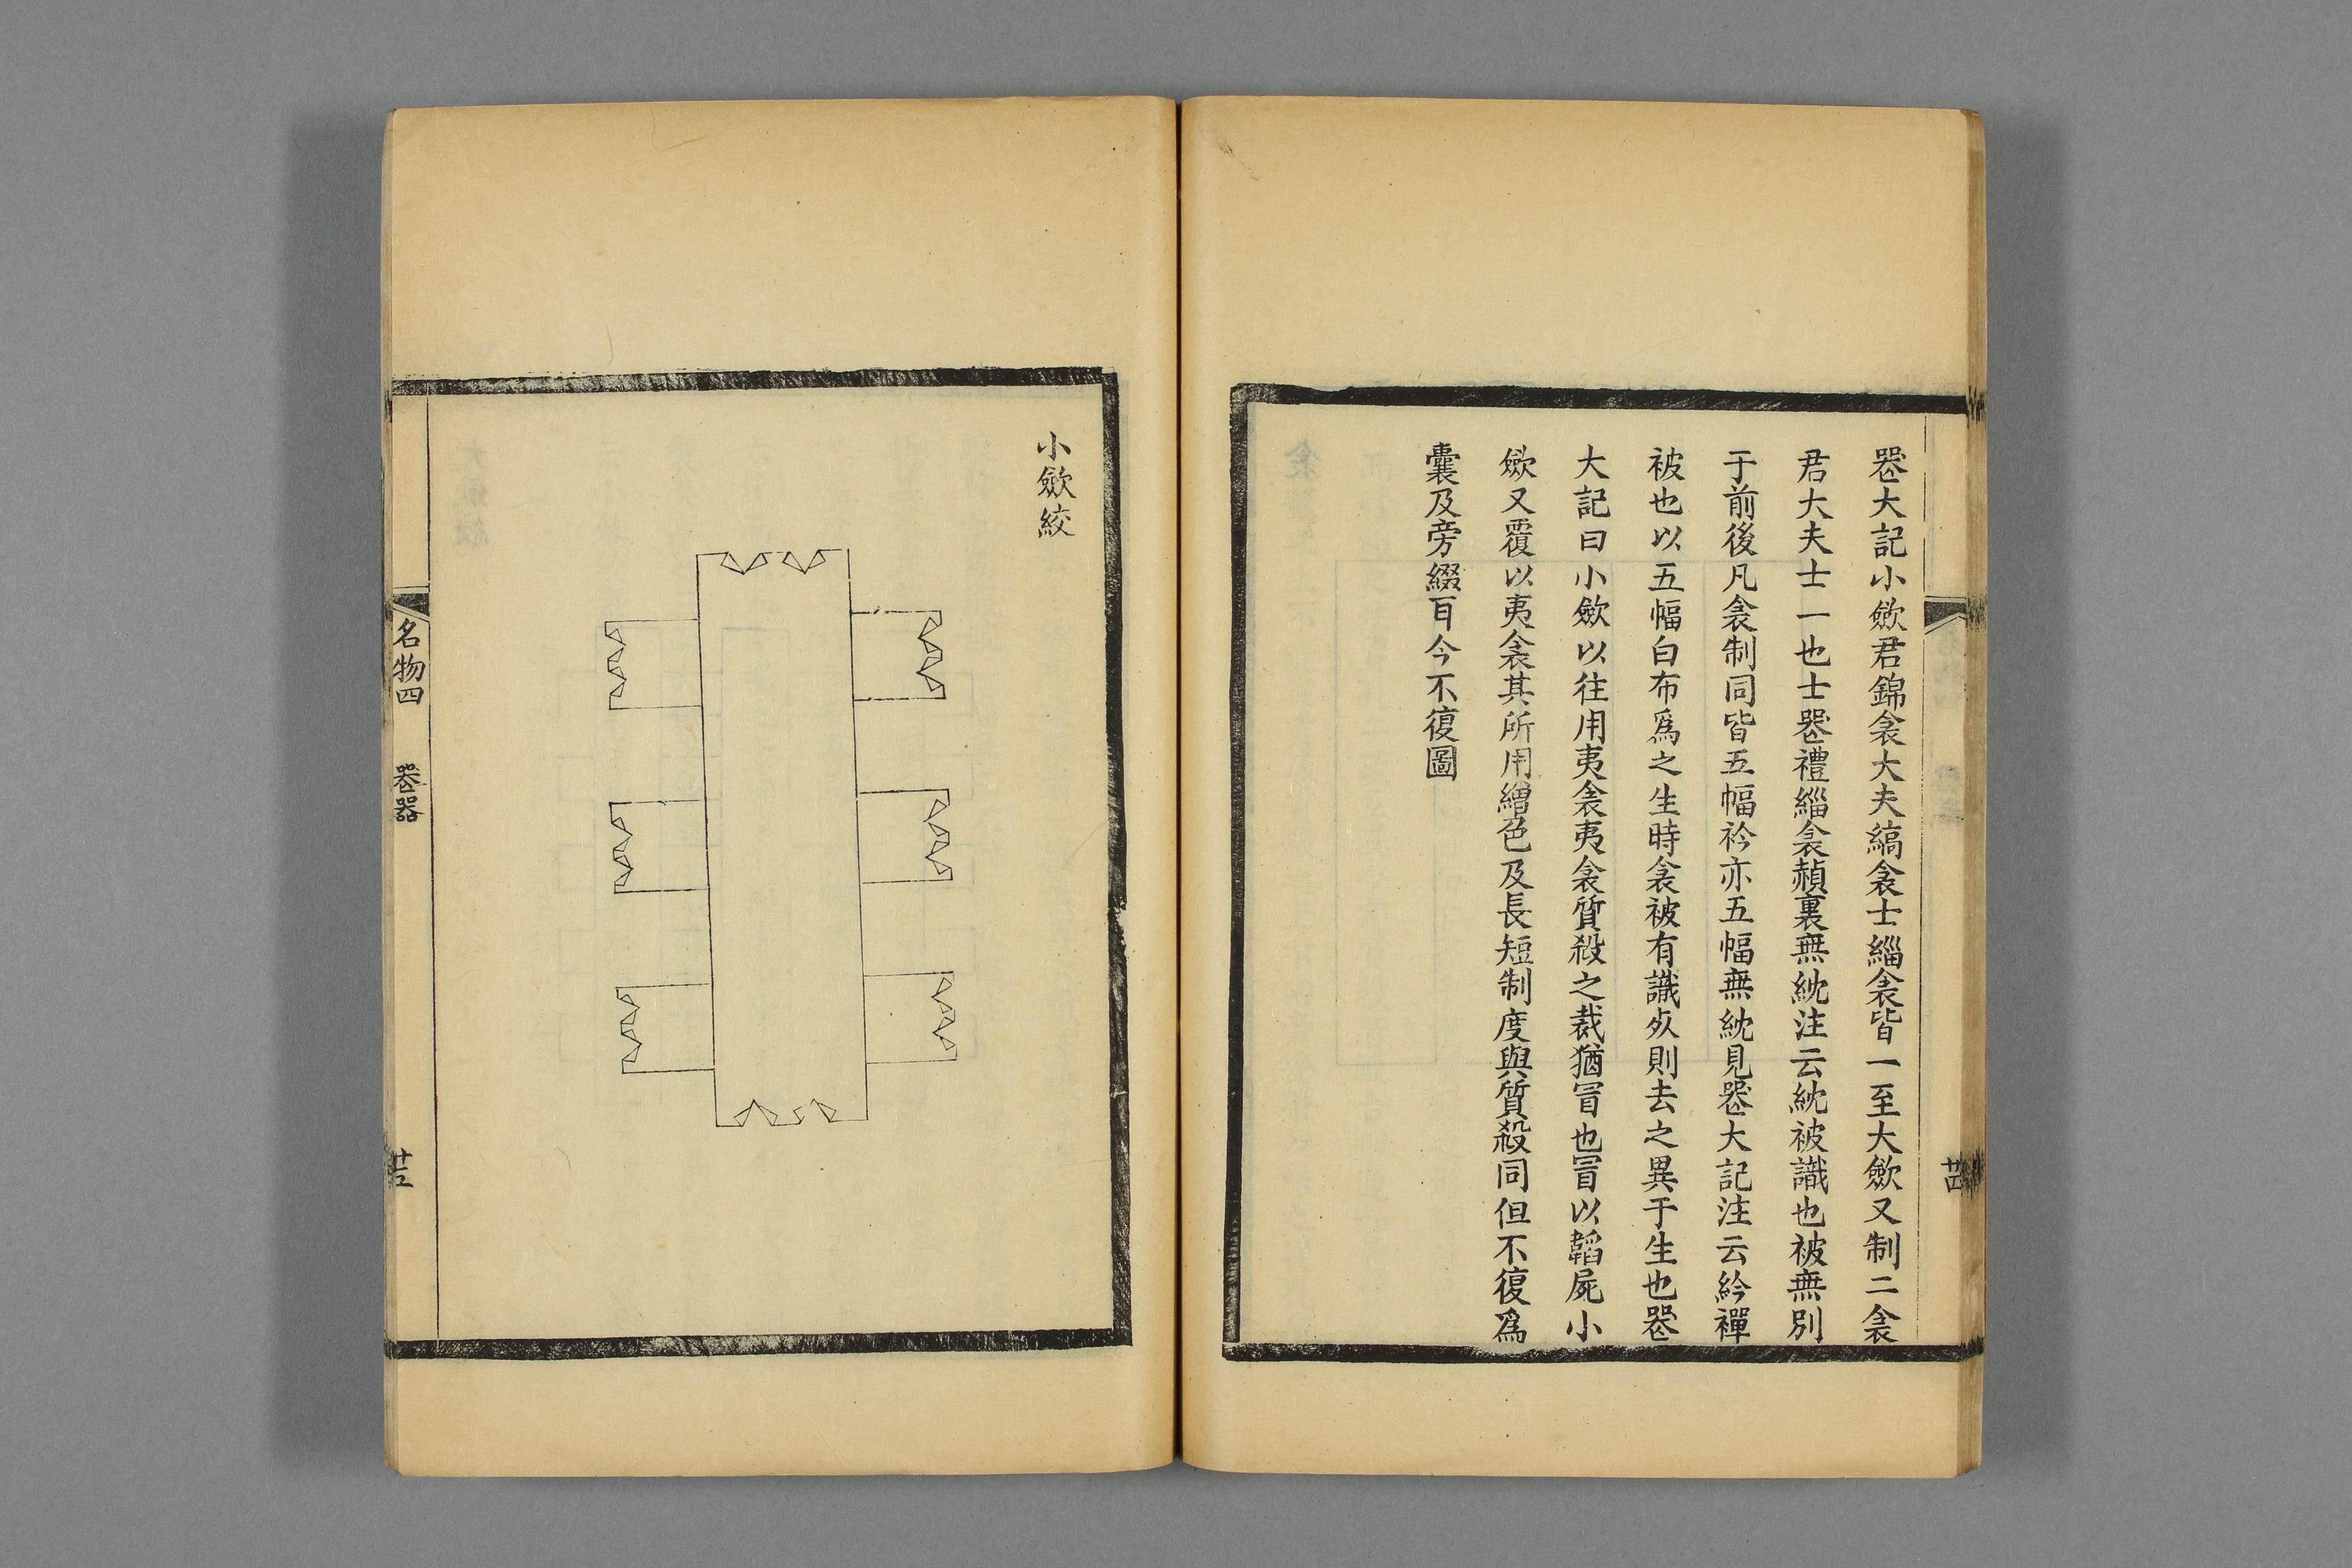 廿四
喪大記小斂君錦衾大夫縞衾士緇衾皆一至大斂又制二衾
君大夫士一也士喪禮緇衾赬裏無紞注云紞被識也被無別
于前後凡衾制同皆五幅衿亦五幅無紞見喪大記注云紟襌
被也以五幅白布爲之生時衾被有識死則去之異于生也喪
大記曰小斂以往用夷衾夷衾質殺之裁猶冒也冒以韜屍小
斂又覆以夷衾其所用繒色及長短制度與質殺同但不復爲
囊及旁綴㫖今不復圖
小斂絞
名物四 喪器
廿五